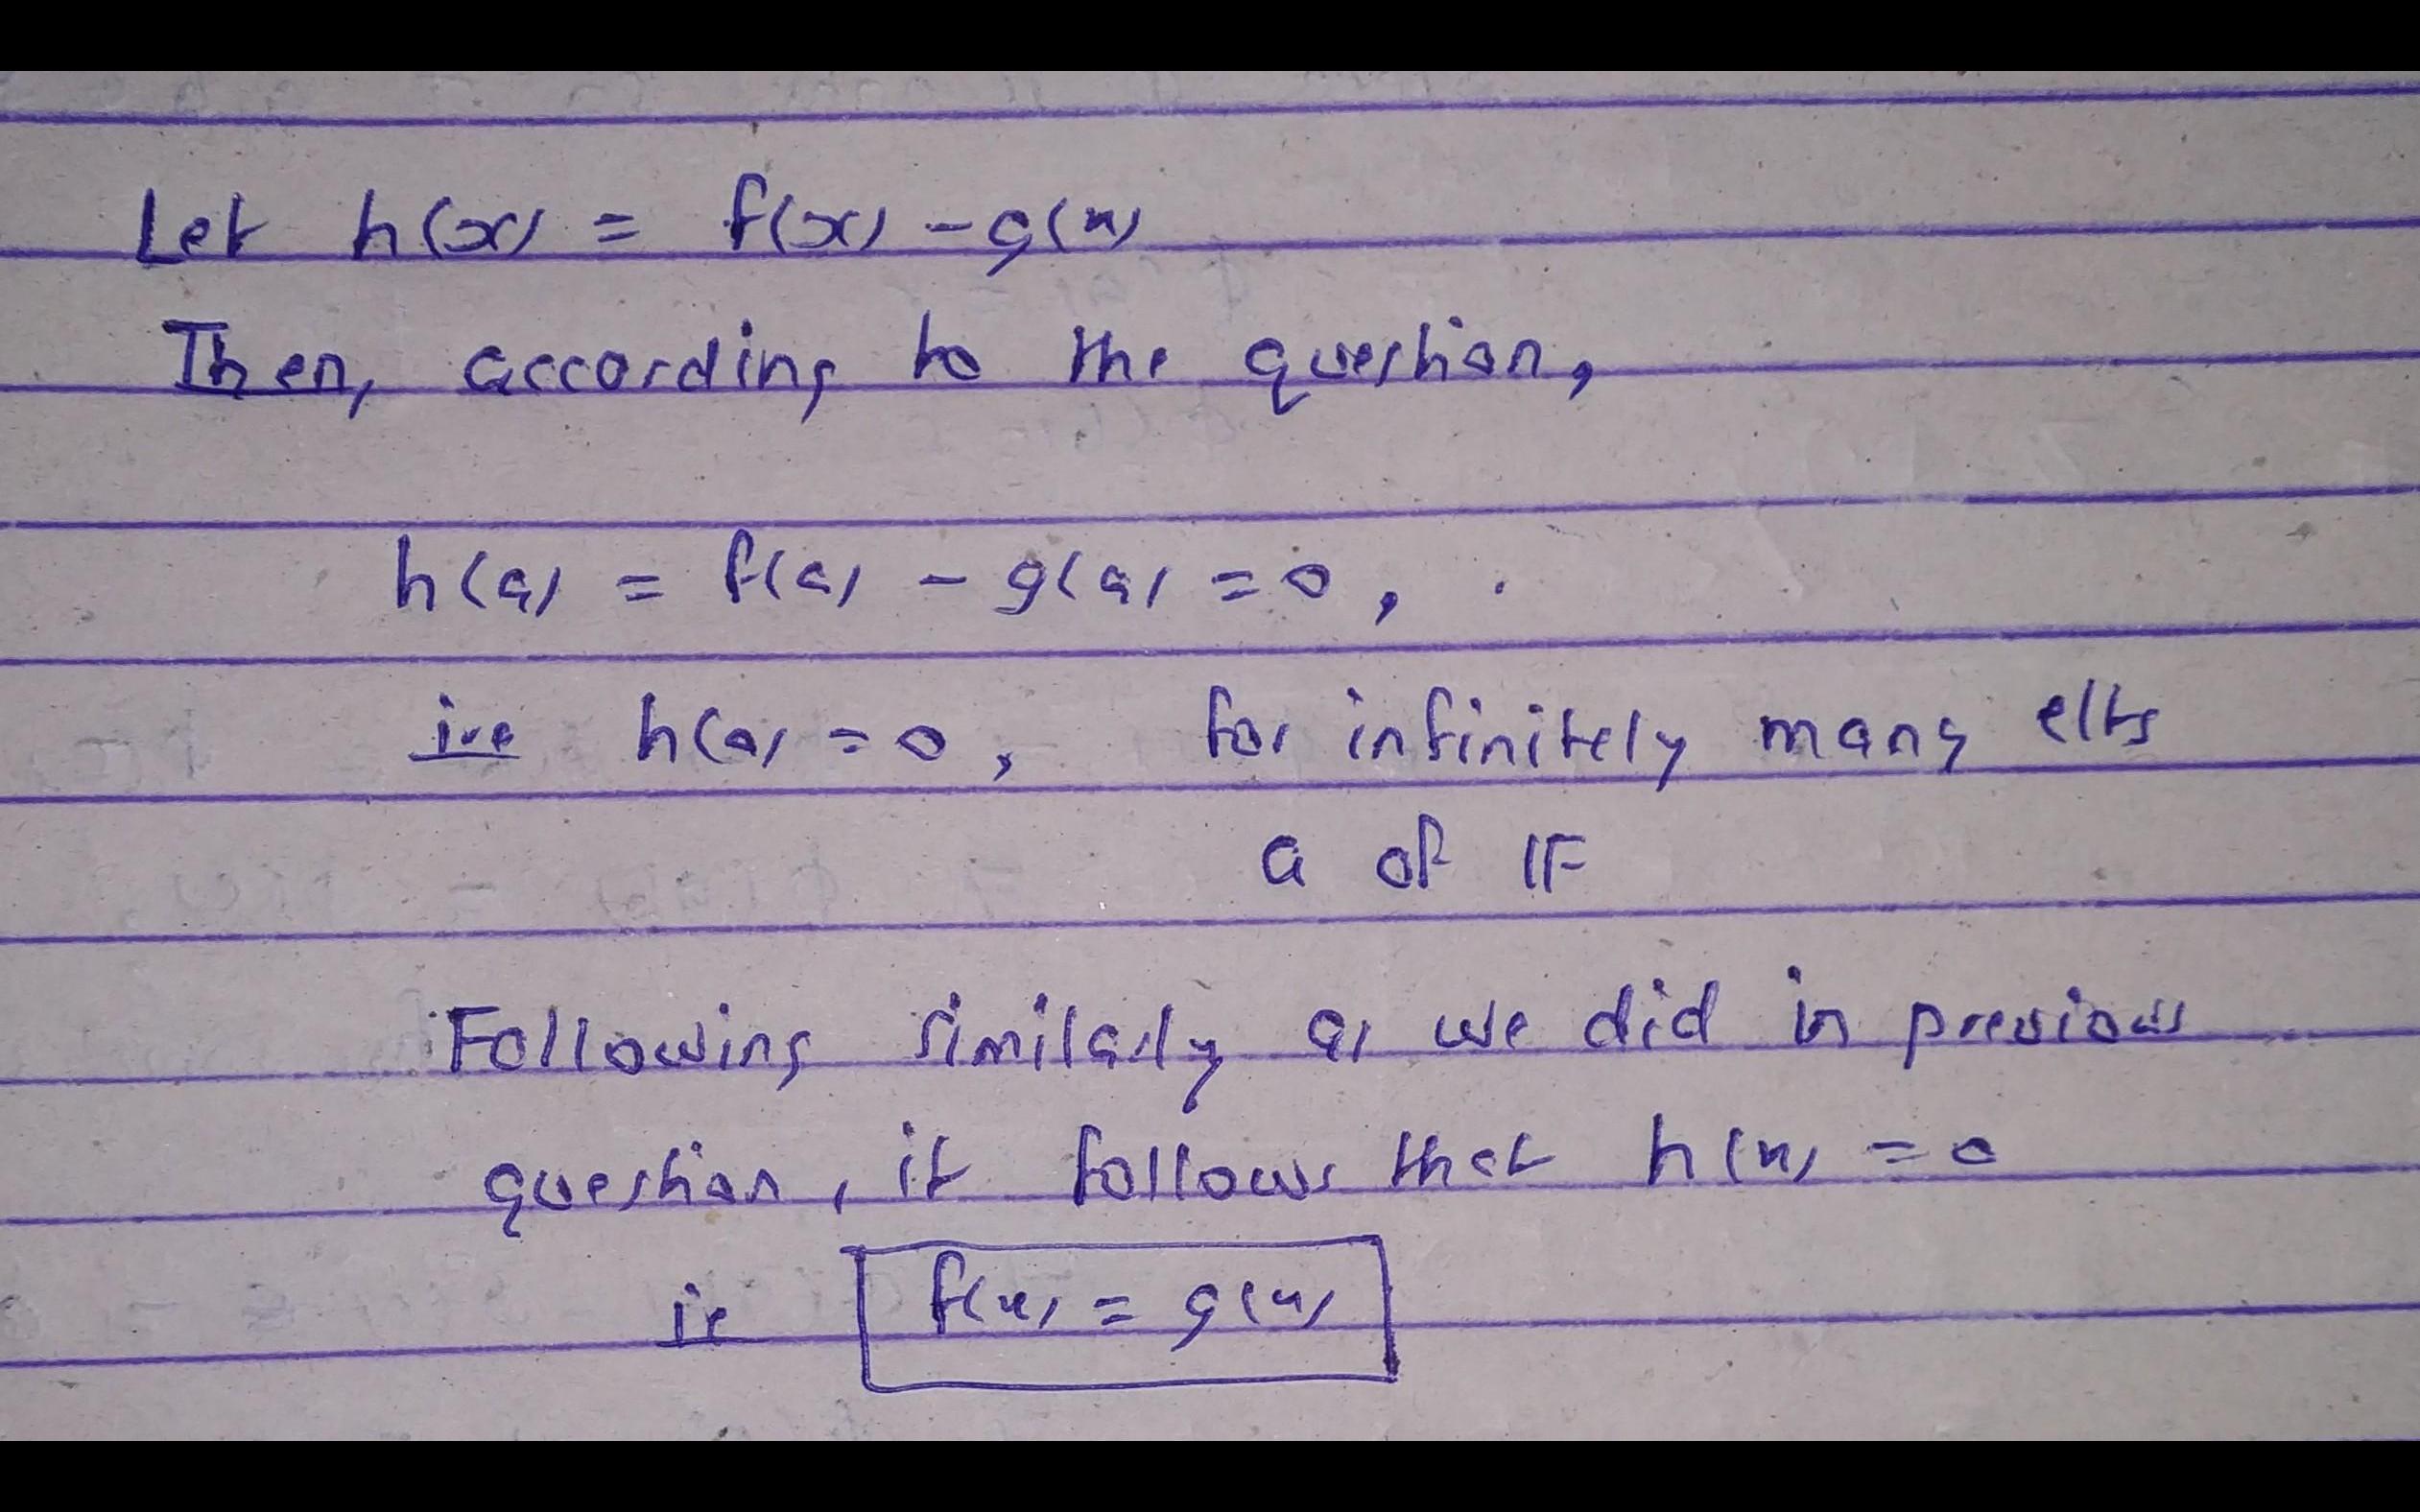 Let h(x) = f(x) - g(x)
Then, according to the question,
h(a) = f(a) - g(a) = 0,
i.e h(a) = 0, for infinitely many elts
a of F
Following similarly as we did in previous
question, it follows that h(x) = 0
ie f(x) = g(x)